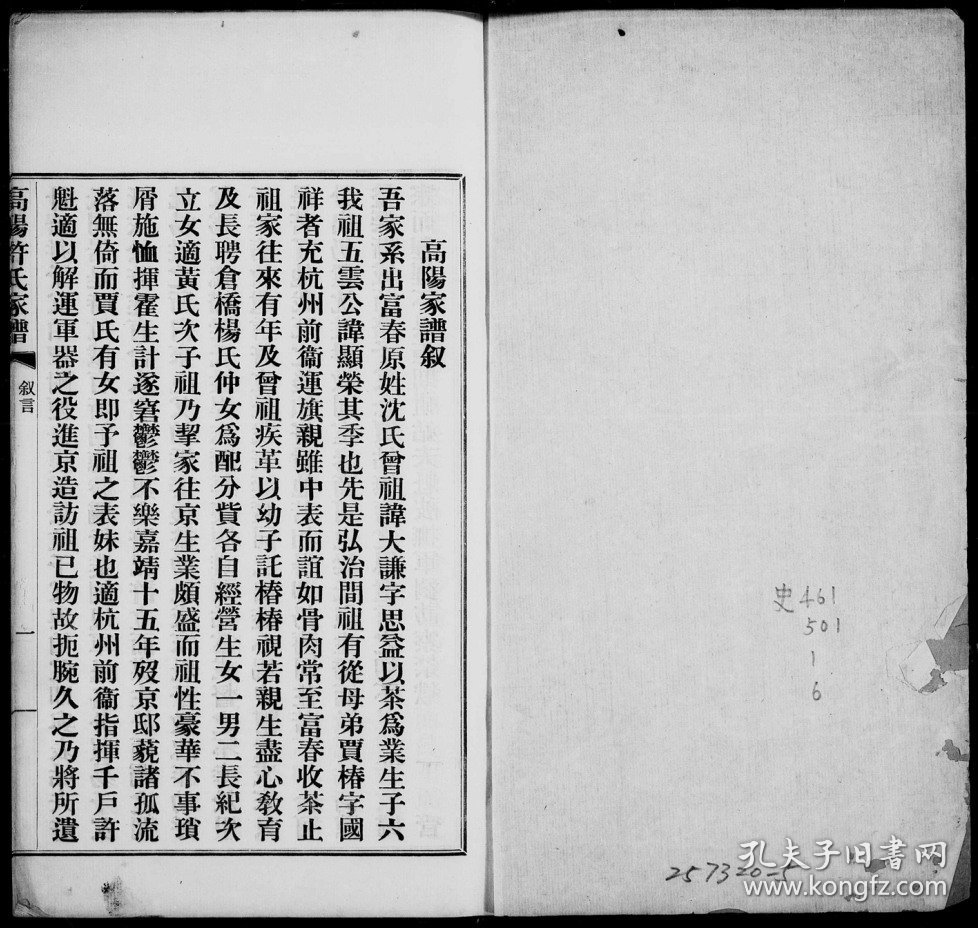 高陽家譜叙
吾家系出富春原姓沈氏曾祖諱大謙字思益以茶爲業生子六
我祖五雲公諱顯榮其季也先是弘治間祖有從母弟賈椿字國
祥者充杭州前衞運旗親雖中表而誼如骨肉常至富春收茶止
祖家往來有年及曾祖疾革以幼子託椿椿視若親生盡心敎育
及長聘倉橋楊氏仲女爲配分貲各自經營生女一男二長紀次
立女適黃氏次子祖乃挈家往京生業頗盛而祖性豪華不事瑣
屑施恤揮霍生計遂窘鬱鬱不樂嘉靖十五年歿京邸藐諸孤流
落無倚而賈氏有女即予祖之表妹也適杭州前衞指揮千戶許
魁適以解運軍器之役進京造訪祖已物故扼腕久之乃將所遺
高陽許氏家譜
叙言
一
史 461
501
1
6
257320-5
孔夫子旧書网
www.kongfz.com